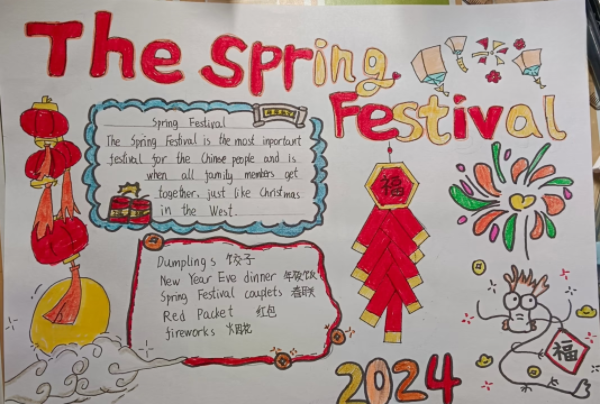 The Spring
Festival
Spring Festival
The Spring Festival is the most inportant
festival for the Chinse people and is
when all family members get
together, just like Christmas
in the West.
福
Dumplings 饺子
New Year Eve dinner 年夜饭
Spring Festival couplets 春联
Red Packet 红包
fireworks 烟花
福
2024